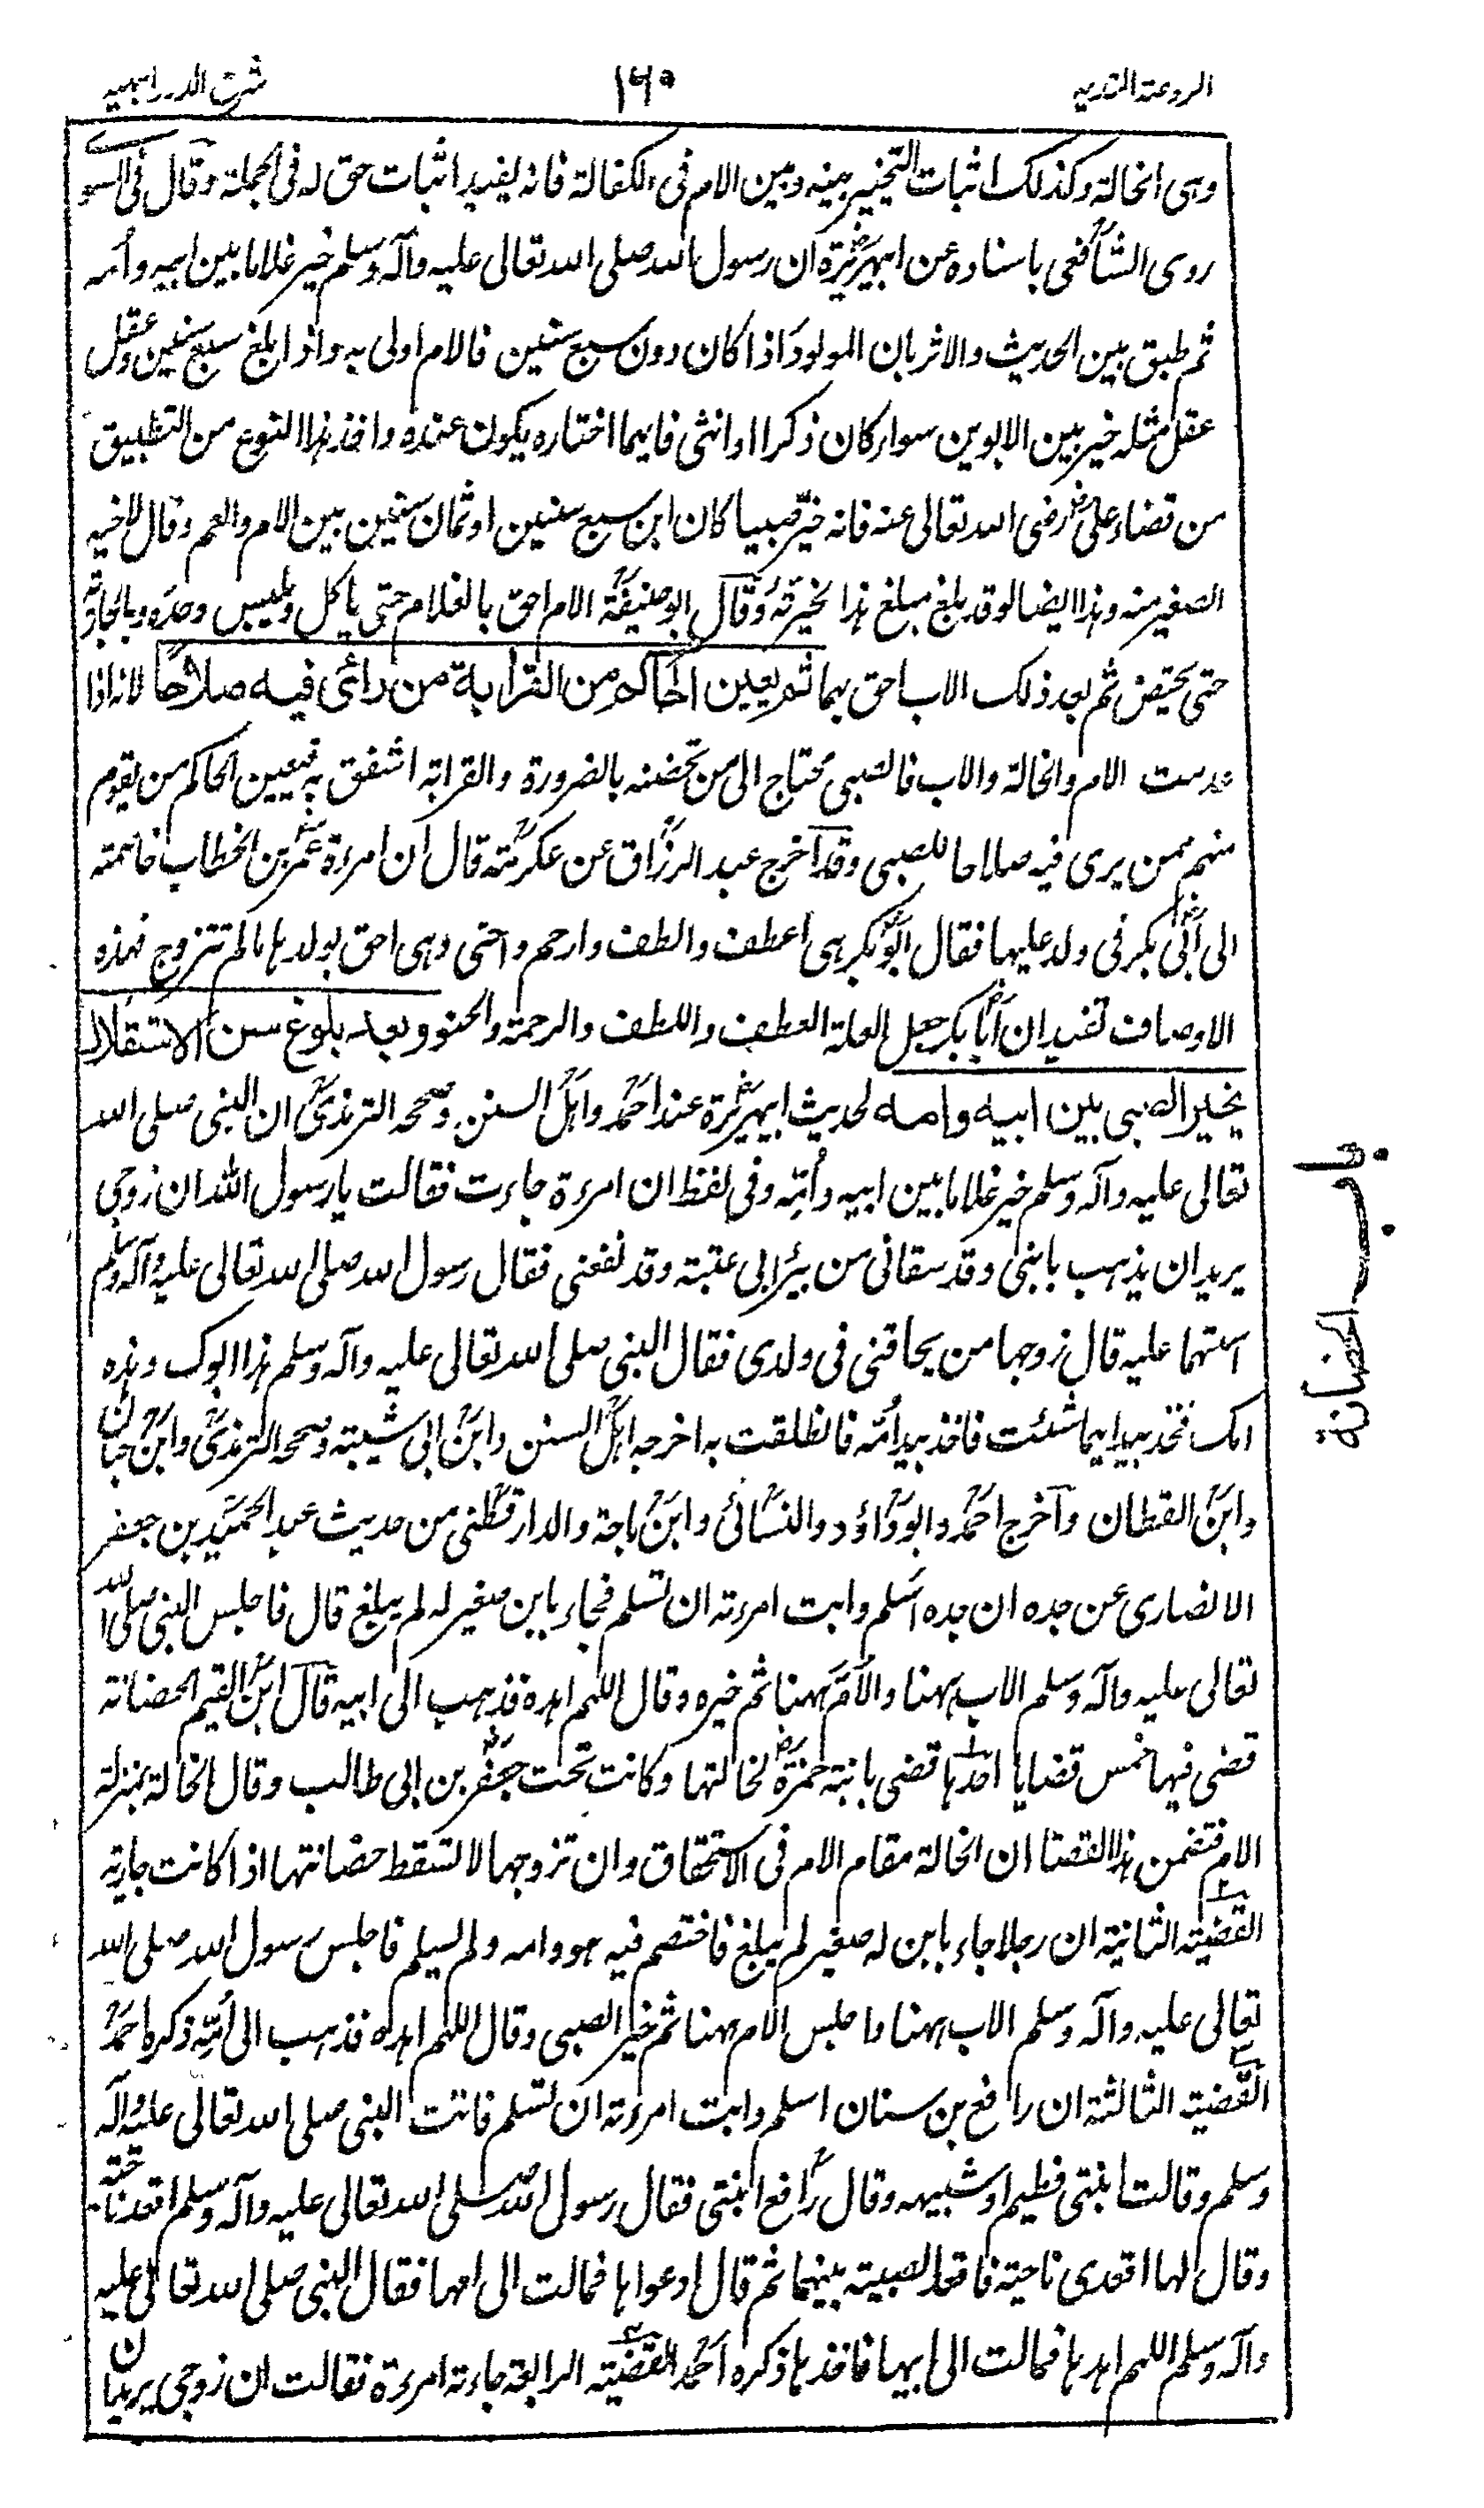 الروضة الندية
١٦٠
شرح الدرر البهية
وهى الخالة وكذلك اثبات التخيير بينه وبين الام فى الكفالة فانه يفيد اثبات حق له فى الجملة وقال فى المسوے
روى الشافعى باسناده عن ابيهريرة ان رسول الله صلى الله تعالى عليه وآله وسلم خير غلاما بين ابيه وامه
ثم طبق بين الحديث والاثر بان المولود اذا كان دون سبع سنين فالام اولى به واذا بلغ سبع سنين وعقل
عقل مثله خير بين الابوين سواء كان ذكرا او انثى فايهما اختاره يكون عنده واخذ هذا النوع من التطبيق
من قضاء على رضى الله تعالى عنه فانه خير صبيا كان ابن سبع سنين او ثمان سنين بين الام والعم وقال لاخيه
الصغير منه وهذا ايضا لو قد بلغ مبلغ هذا لخيرته وقال ابو حنيفة الام احق بالغلام حتى ياكل ويلبس وحده وبالجارية
حتى تحيض ثم بعد ذلك الاب احق بهما ثم يعين الحاكم من القرابة من رأى فيه صلاحا لانه اذا
عدمت الام والخالة والاب فالصبى محتاج الى من تحضنه بالضرورة والقرابة اشفق به فيعين الحاكم من يقوم
منهم ممن يرى فيه صلاحا للصبى وقد اخرج عبد الرزاق عن عكرمة قال ان امرءة عمر بن الخطاب خاصمته
الى ابى بكر فى ولد عليها فقال ابو بكر هى اعطف والطف وارحم واحنى وهى احق بولدها ما لم تتزوج فهذه
الاوصاف تفيد ان ابا بكر جعل العلة العطف واللطف والرحمة والحنو وبعد بلوغ سن الاستقلال
يخير الصبى بين ابيه وامه لحديث ابيهريرة عند احمد واهل السنن وصححه الترمذى ان النبى صلى الله
تعالى عليه وآله وسلم خير غلاما بين ابيه وامه وفى لفظ ان امرءة جاءت فقالت يا رسول الله ان زوجى
يريد ان يذهب بابنى وقد سقانى من بئر ابى عتبة وقد نفعنى فقال رسول الله صلى الله تعالى عليه وآله وسلم
استهما عليه قال زوجها من يحاقنى فى ولدى فقال النبى صلى الله تعالى عليه وآله وسلم هذا ابوك وهذه
امك فخذ بيد ايهما شئت فاخذ بيد امه فانطلقت به اخرجه اهل السنن وابن ابى شيبة وصححه الترمذى وابن حبان
وابن القطان وآخرج احمد وابو داؤد والنسائى وابن ماجة والدارقطنى من حديث عبد الحميد بن جعفر
الانصارى عن جده ان جده اسلم وابت امرءته ان تسلم فجاء بابن صغير له لم يبلغ قال فاجلس النبى صلى الله
تعالى عليه وآله وسلم الاب ههنا والام ههنا ثم خيره وقال اللهم اهده فذهب الى ابيه قال ابن القيم الحضانة
قضى فيها خمس قضايا احدها قضى بابنة حمزة لخالتها وكانت تحت جعفر بن ابى طالب وقال الخالة بمنزلة
الام فتضمن هذا القضا ان الخالة مقام الام فى الاستحقاق وان تزوجها لا تسقط حضانتها اذا كانت جارية
القضية الثانية ان رجلا جاء بابن له صغير لم يبلغ فاختصم فيه هو وامه ولم تسلم فاجلس رسول الله صلى الله
تعالى عليه وآله وسلم الاب ههنا واجلس الام ههنا ثم خير الصبى وقال اللهم اهده فذهب الى امه ذكره احمد
القضية الثالثة ان رافع بن سنان اسلم وابت امرءته ان تسلم فاتت النبى صلى الله تعالى عليه وآله
وسلم وقالت ابنتى فطيم او شبيهه وقال رافع ابنتى فقال رسول الله صلى الله تعالى عليه وآله وسلم اقعد ناحية
وقال لها اقعدى ناحية فاقعد الصبية بينهما ثم قال ادعواها فمالت الى امها فقال النبى صلى الله تعالى عليه
وآله وسلم اللهم اهدها فمالت الى ابيها فاخذها ذكره احمد القضية الرابعة جاءته امرءة فقالت ان زوجى يريد ان
باب الحضانة